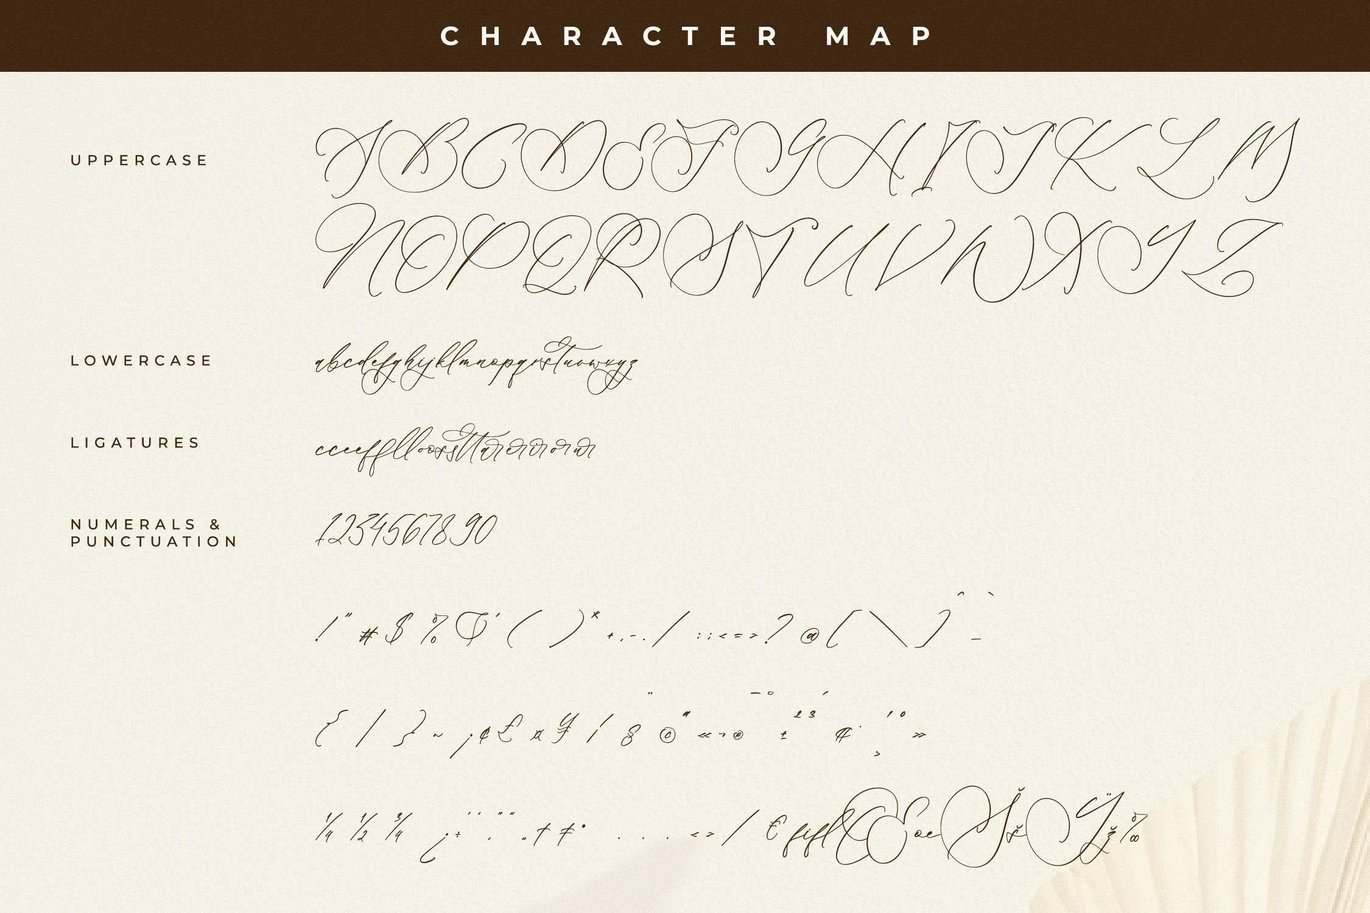 CHARACTER MAP
UPPERCASE
ABCDEFGHIJKLM
NOPQRSTUVWXYZ
LOWERCASE
abcdefghijklmnopqrstuvwxyz
LIGATURES
NUMERALS &
PUNCTUATION
1234567890
! " # $ % & ' ( ) * + , - . / : ; < = > ? @ [ \ ] ^ _ `
{ | } ~ ¡ ¢ £ ¤ ¥ ¦ § ¨ © ª « ¬ ® ¯ ° ± ² ³ ´ ¶ · ¸ ¹ º »
¼ ½ ¾ ¿